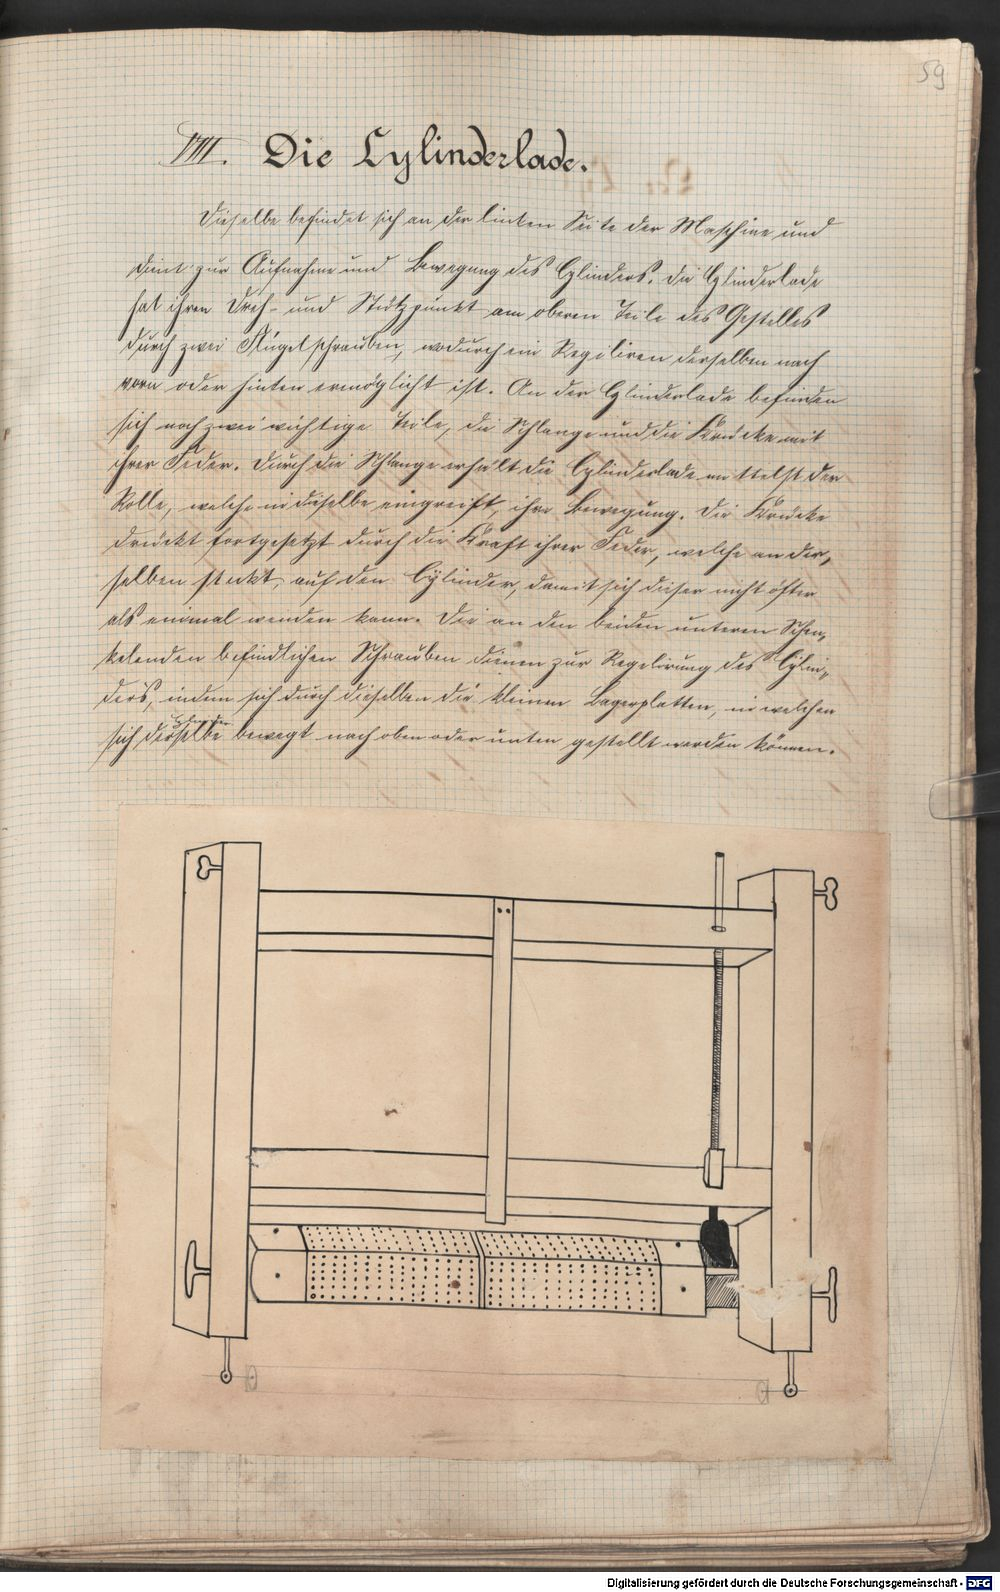 59
VIII. Die Cylinderlade.
Dieselbe befindet sich an der linken Seite der Maschine und
dient zur Aufnahme und Bewegung des Cylinders. Die Cylinderlade
hat ihren Dreh- und Stützpunkt am oberen Teile des Gestelles
durch zwei Flügelschrauben, wodurch ein Reguliren derselben nach
vorn oder hinten ermöglicht ist. An der Cylinderlade befinden
sich noch zwei wichtige Teile, die Schlange und die Krücke mit
ihrer Feder. Durch die Schlange erhält die Cylinderlade mittelst der
Rolle, welche in dieselbe eingreift, ihre Bewegung. Die Krücke
drückt fortgesetzt durch die Kraft ihrer Feder, welche an der-
selben steckt, auf den Cylinder, damit sich dieser nicht öfter
als einmal wenden kann. Die an den beiden unteren Schen-
kelenden befindlichen Schrauben dienen zur Regelirung des Cylin-
ders, indem sich durch dieselben die kleinen Lagerplatten, in welchen
sich der Cylinder bewegt nach oben oder unten gestellt werden können.
Digitalisierung gefördert durch die Deutsche Forschungsgemeinschaft - DFG